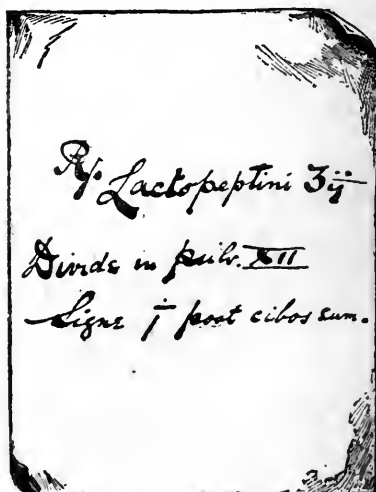 ℞. Lactopeptini ʒij
Divide in pulv. XII
Signe i post cibos sum.